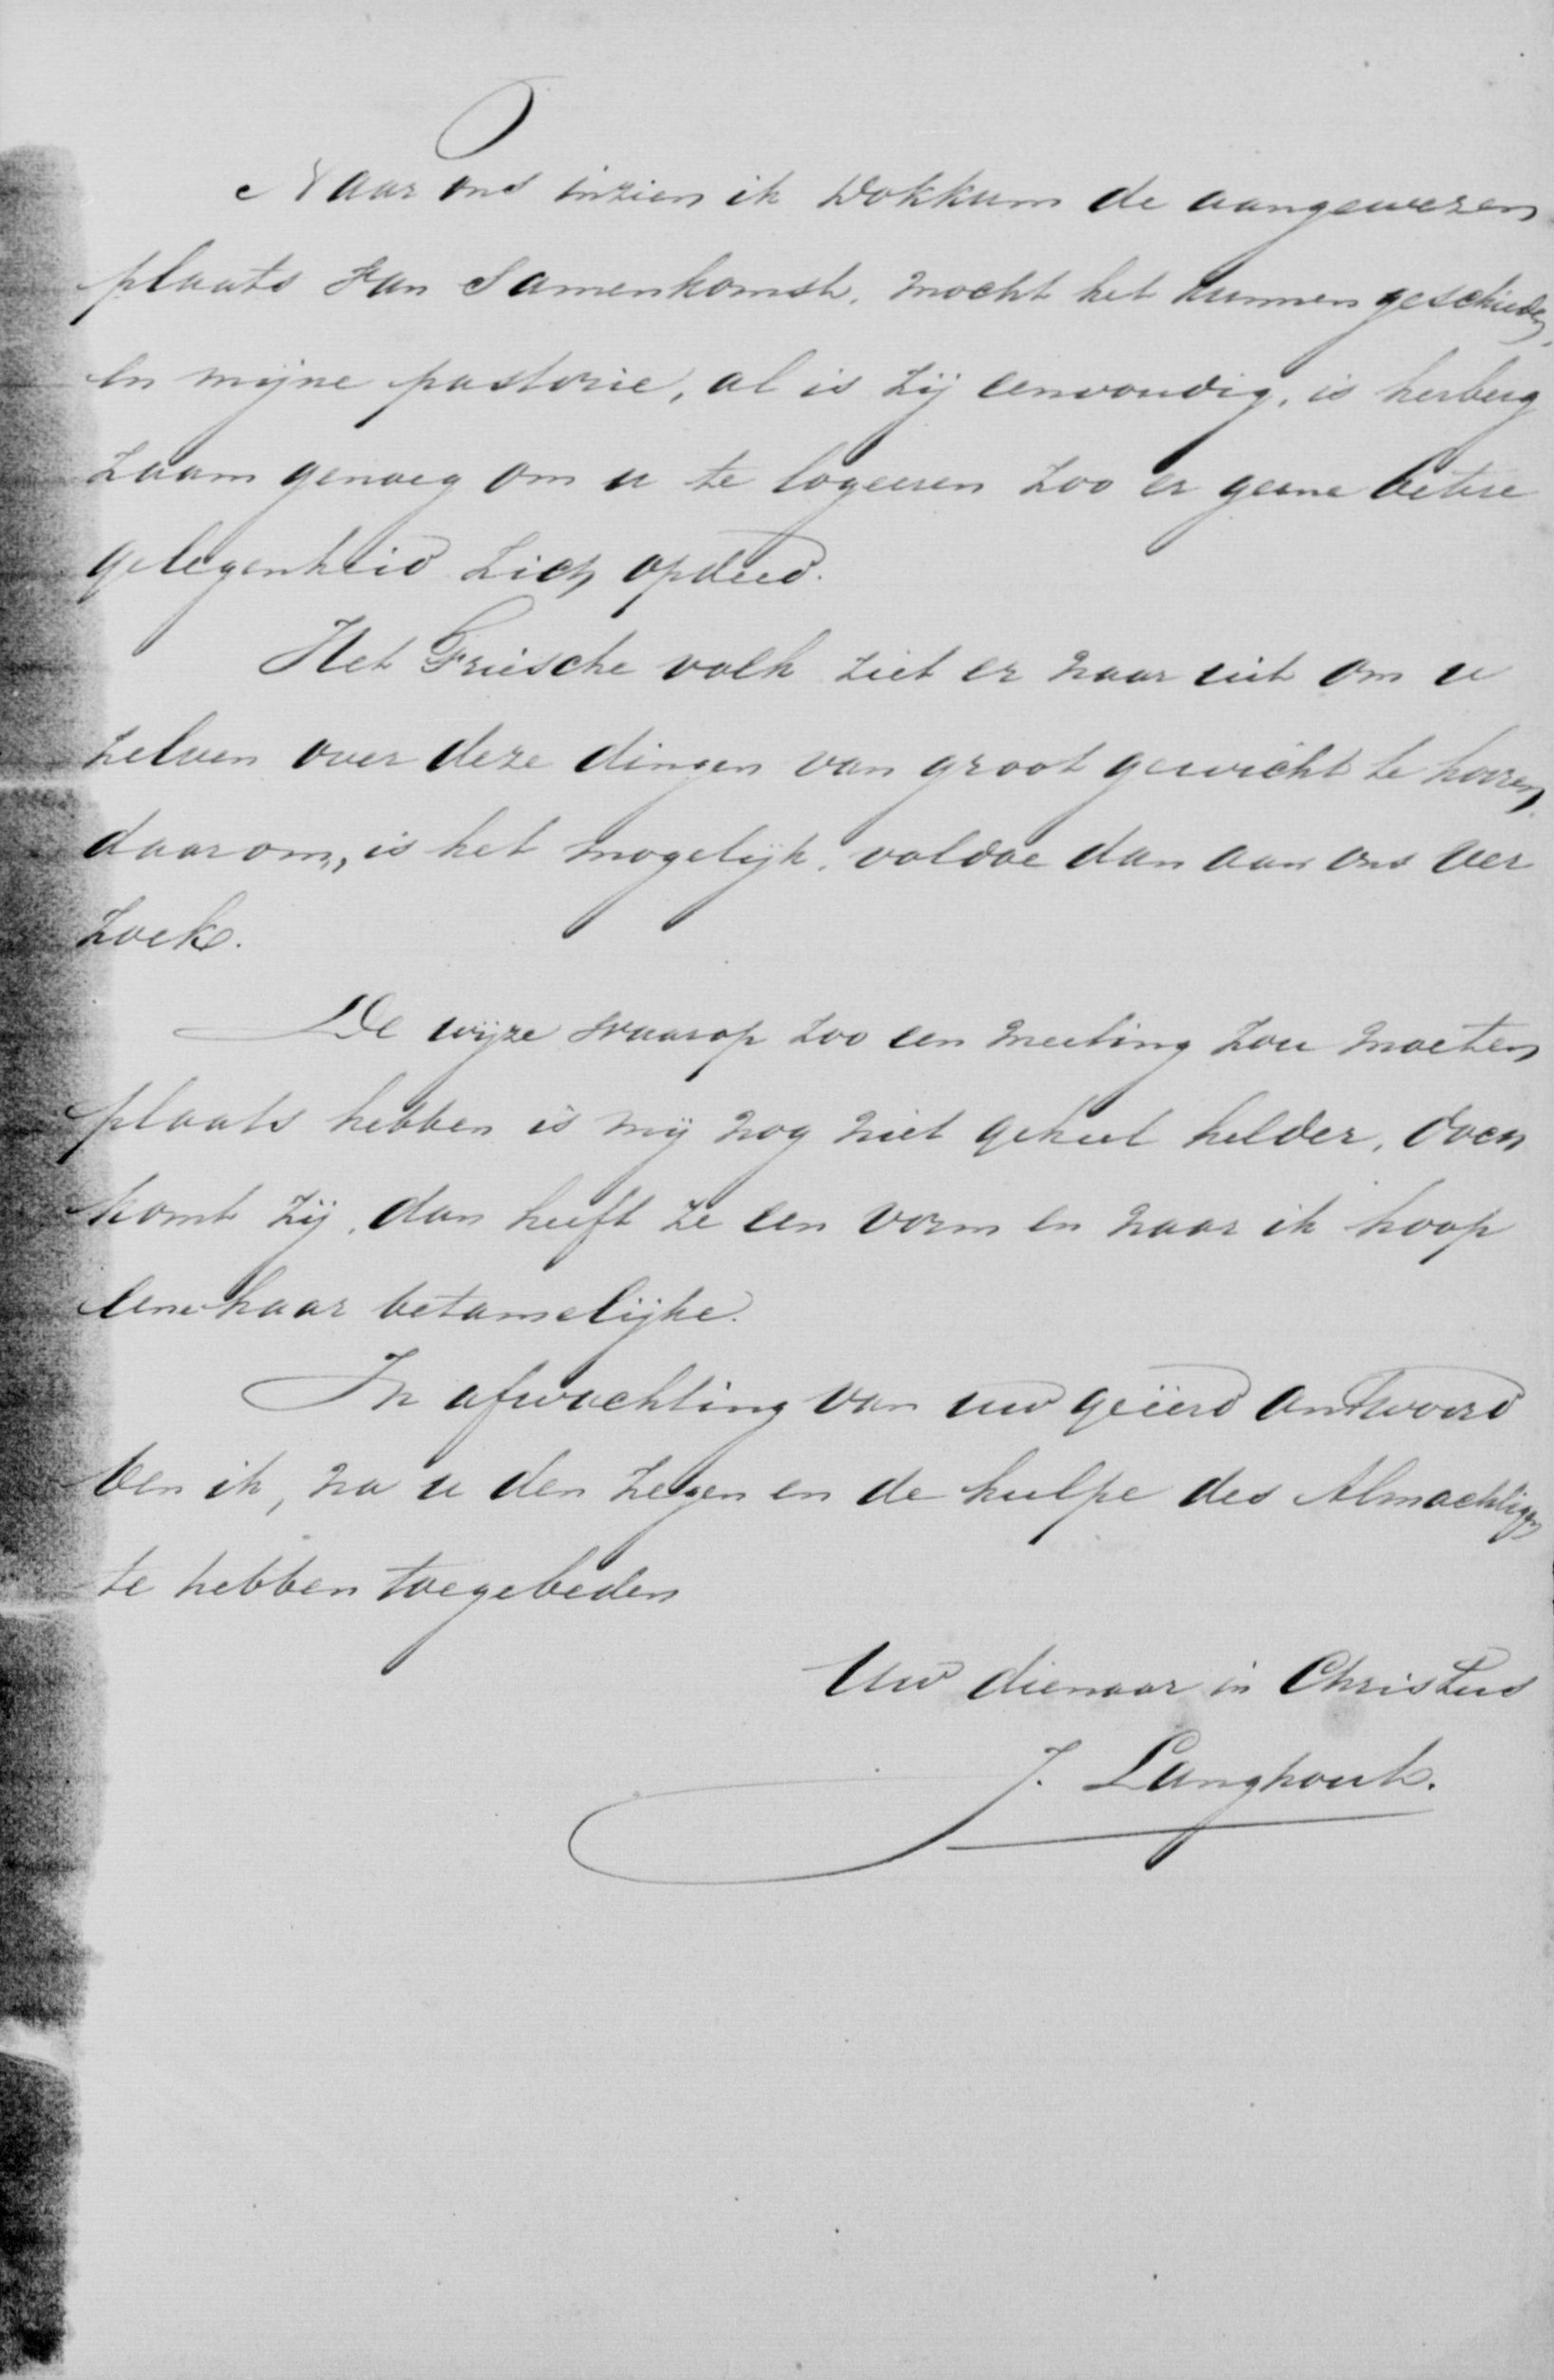 Naar ons inzien ik Dokkum de aangewezen
plaats van Samenkomst, mocht het kunnen geschieden,
en mijne pastorie, al is zij eenvoudig, is herberg
zaam genoeg om u te logeeren zoo er geene betere
gelegenheid zich opdeed.
Het Friesche volk ziet er naar uit om u
zelven over deze dingen van groot gewicht te hooren,
daarom, is het mogelijk, voldoe dan aan ons ver
zoek.
De wijze waarop zoo een meeting zou moeten
plaats hebben is mij nog niet geheel helder, doch
komt zij, dan heeft ze een vorm en naar ik hoop
eene haar betamelijke.
In afwachting van uw geëerd antwoord
ben ik, na u den zegen en de hulpe des Almachtigen
te hebben toegebeden
Uw dienaar in Christus
J. Langhout.